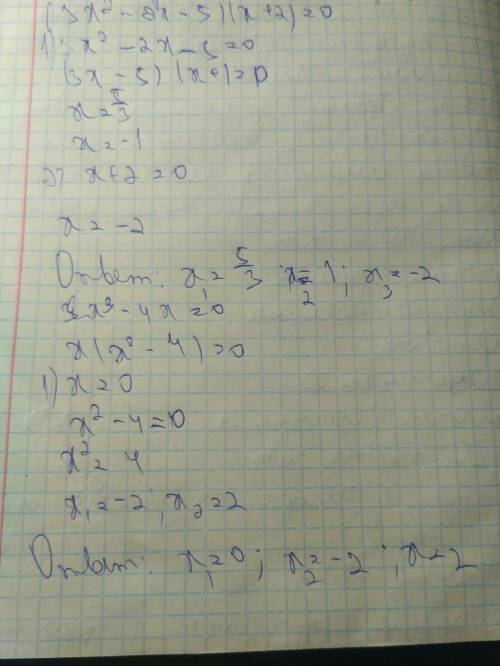 (3x² - 2x - 5)(x+2)=0
1) 3x² - 2x - 5 = 0
(3x - 5)(x+1)=0
x = 5/3
x = -1
2) x+2 = 0
x = -2
Ответ: x₁ = 5/3 ; x₂ = 1 ; x₃ = -2
x³ - 4x = 0
x(x² - 4) = 0
1) x = 0
x² - 4 = 0
x² = 4
x₁ = -2 ; x₂ = 2
Ответ: x₁ = 0 ; x₂ = -2 ; x = 2